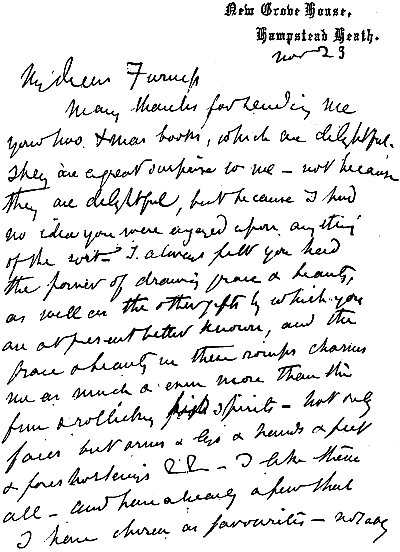 New Grove House,
Hampstead Heath.
Nov 23
My dear Furniss
Many thanks for sending me
your two Xmas books, which are delightful.
They are a great surprise to me – not because
they are delightful, but because I had
no idea you were engaged upon anything
of the sort – I always felt you had
the power of drawing grace & beauty,
as well as the other gifts by which you
are at present better known, and the
grace & beauty in these romps charms
me as much & even more than the
fun & rollicking spirits – not only
faces but arms & legs & hands & feet
& foreshortenings – I like them
all – and have already a few that
I have chosen as favourites – notably